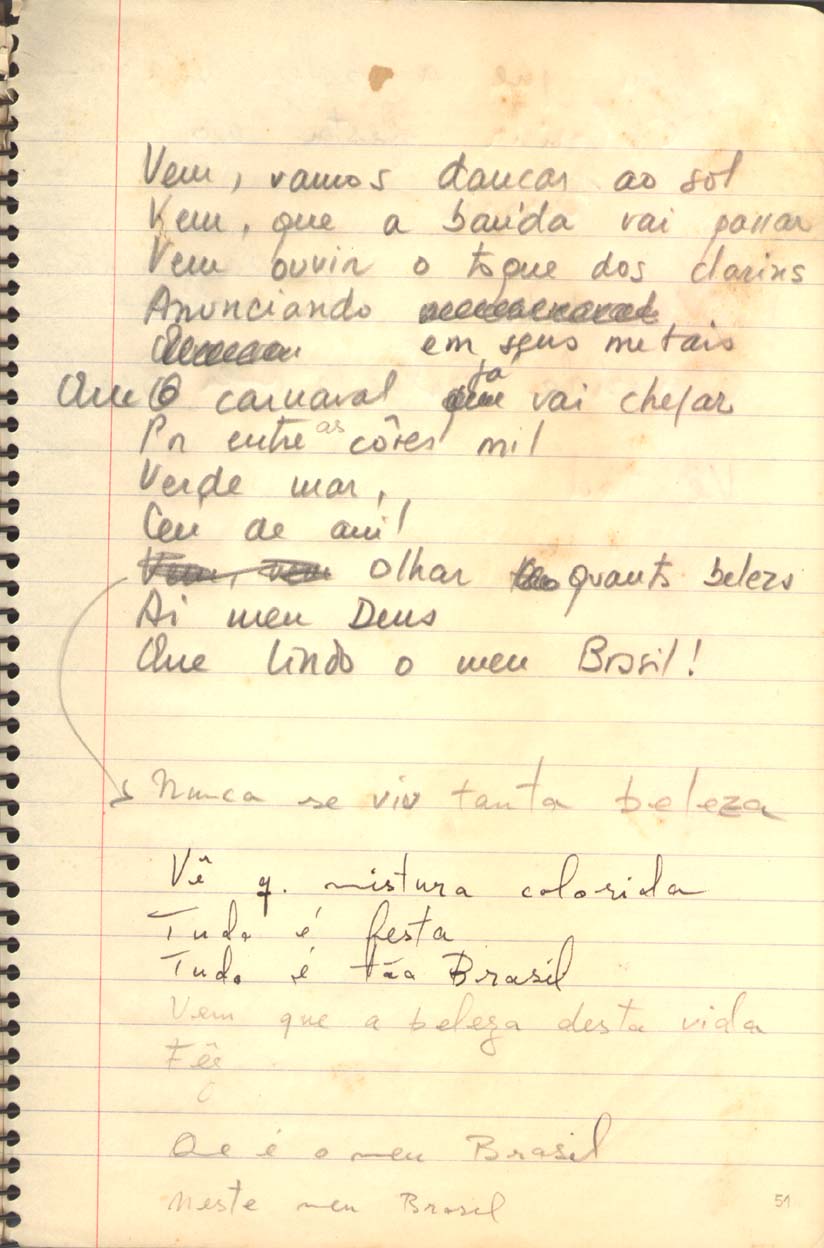 Vem, vamos dançar ao sol
Vem, que a banda vai passar
Vem ouvir o toque dos clarins
Anunciando
em seus metais
Que O carnaval já vai chegar
Por entre as côres mil
Verde mar,
Ceu de anil
Vem, vem olhar quanta beleza
Ai meu Deus
Que lindo o meu Brasil!
Nunca se viu tanta beleza
Vê q. mistura colorida
Tudo é festa
Tudo é tão Brasil
Vem que a beleza desta vida
Fês
O
Que é o meu Brasil
Neste meu Brasil
51